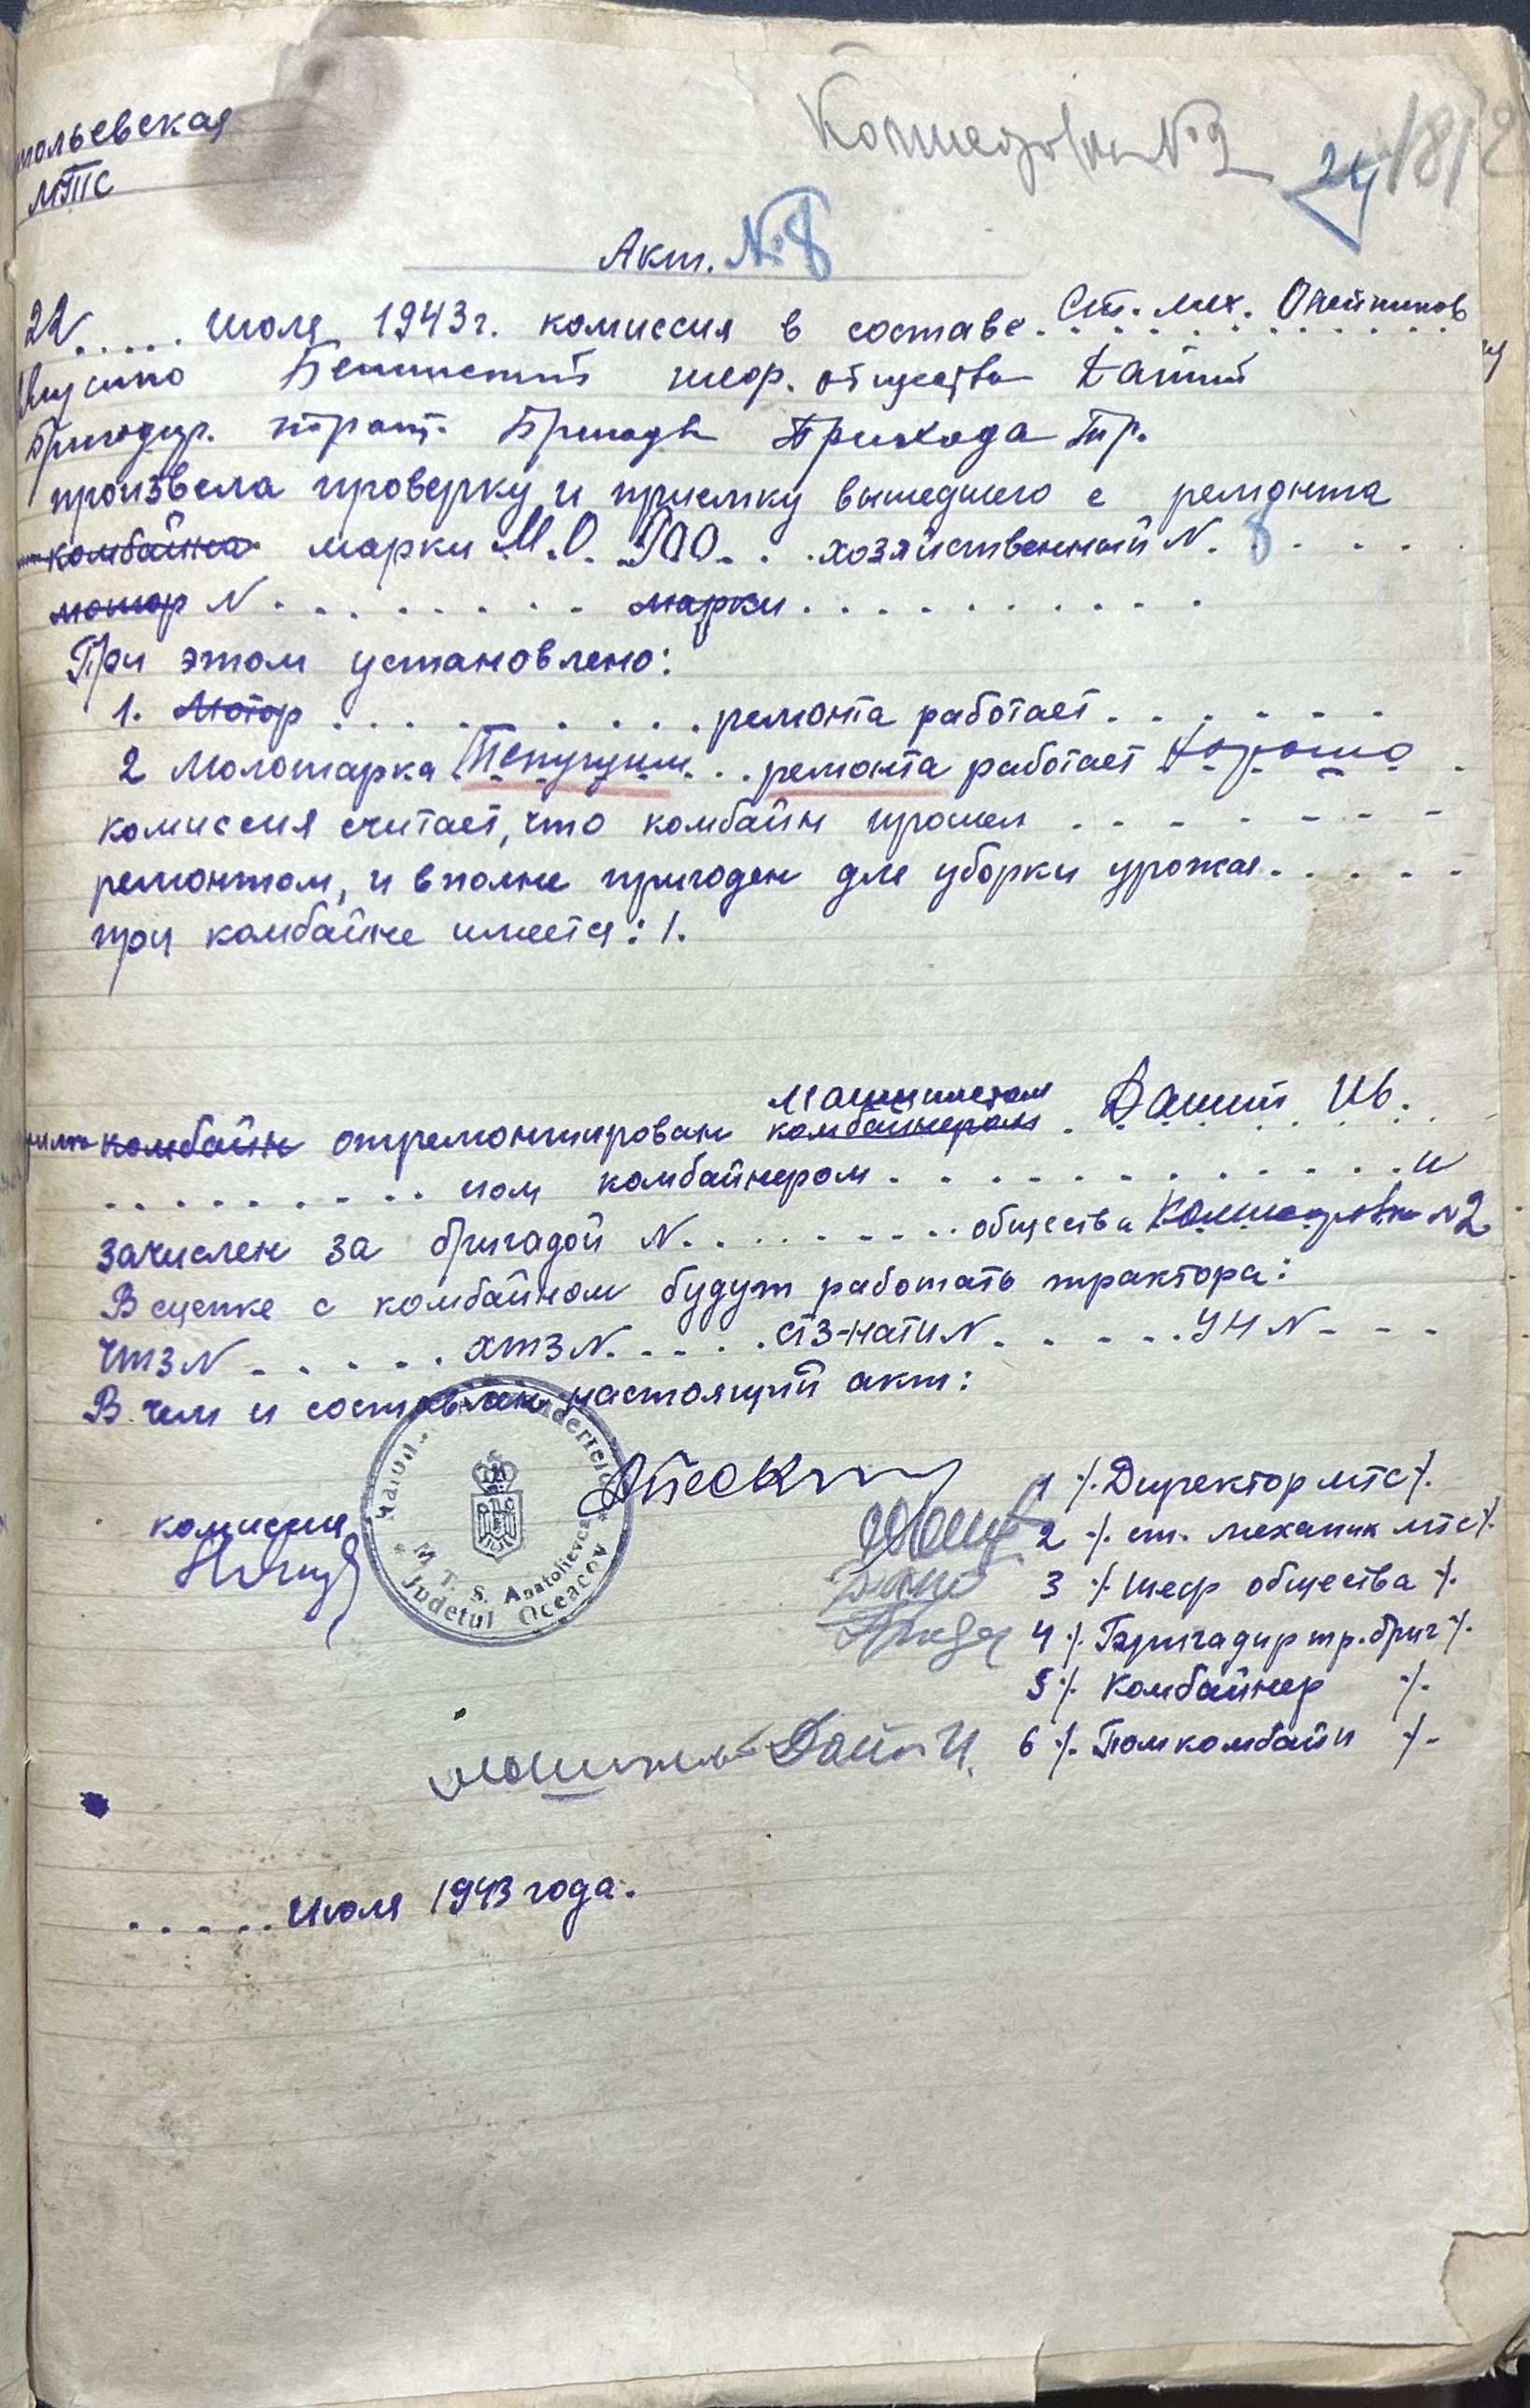 тольевская
МТС
Комиссаровка №2
24
Акт. №8
22..... июля 1943г. комиссия в составе. Ст. мех. Олейников
шеф. общества Даший
Бригадир. тракт. Бригады Приходa Тр.
произвела проверку и приемку вышедшего с ремонта
комбайна марки М.О. 900. . . хозяйственный N. 8 . . . .
мотор N . . . . . . . . марки . . . . . . . . . .
При этом установлено:
1. Мотор . . . . . . . . . . ремонта работает . . . . . . .
2 Молотарка Текущим . . ремонта работает хорошо .
комиссия считает, что комбайн прошел . . . . . . .
ремонтом, и вполне пригоден для уборки урожая . . . . .
при комбайне имеется: 1.
машинистом
комбайн отремонтирован комбайнером . Даший Ив.
. . . . . . . . . . пом комбайнером . . . . . . . . . . . . . и
зачислен за бригадой N. . . . . . . . . общества Комиссаровка N2
В сцепке с комбайном будут работать трактора:
ЧТЗ N . . . . . . ХТЗ N. . . . . СТЗ-НАТИ N . . . . . . УН N - - -
В чем и составлен настоящий акт:
M. T. S. Anatolievca
Judetul Oceacov
комиссия
1 /. Директор МТС /.
2 /. ст. механик МТС /.
3 /. Шеф общества /.
4 /. Бригадир тр. бриг /.
5 /. Комбайнер /.
6 /. Помкомбайн /.
. . . . . июля 1943 года.